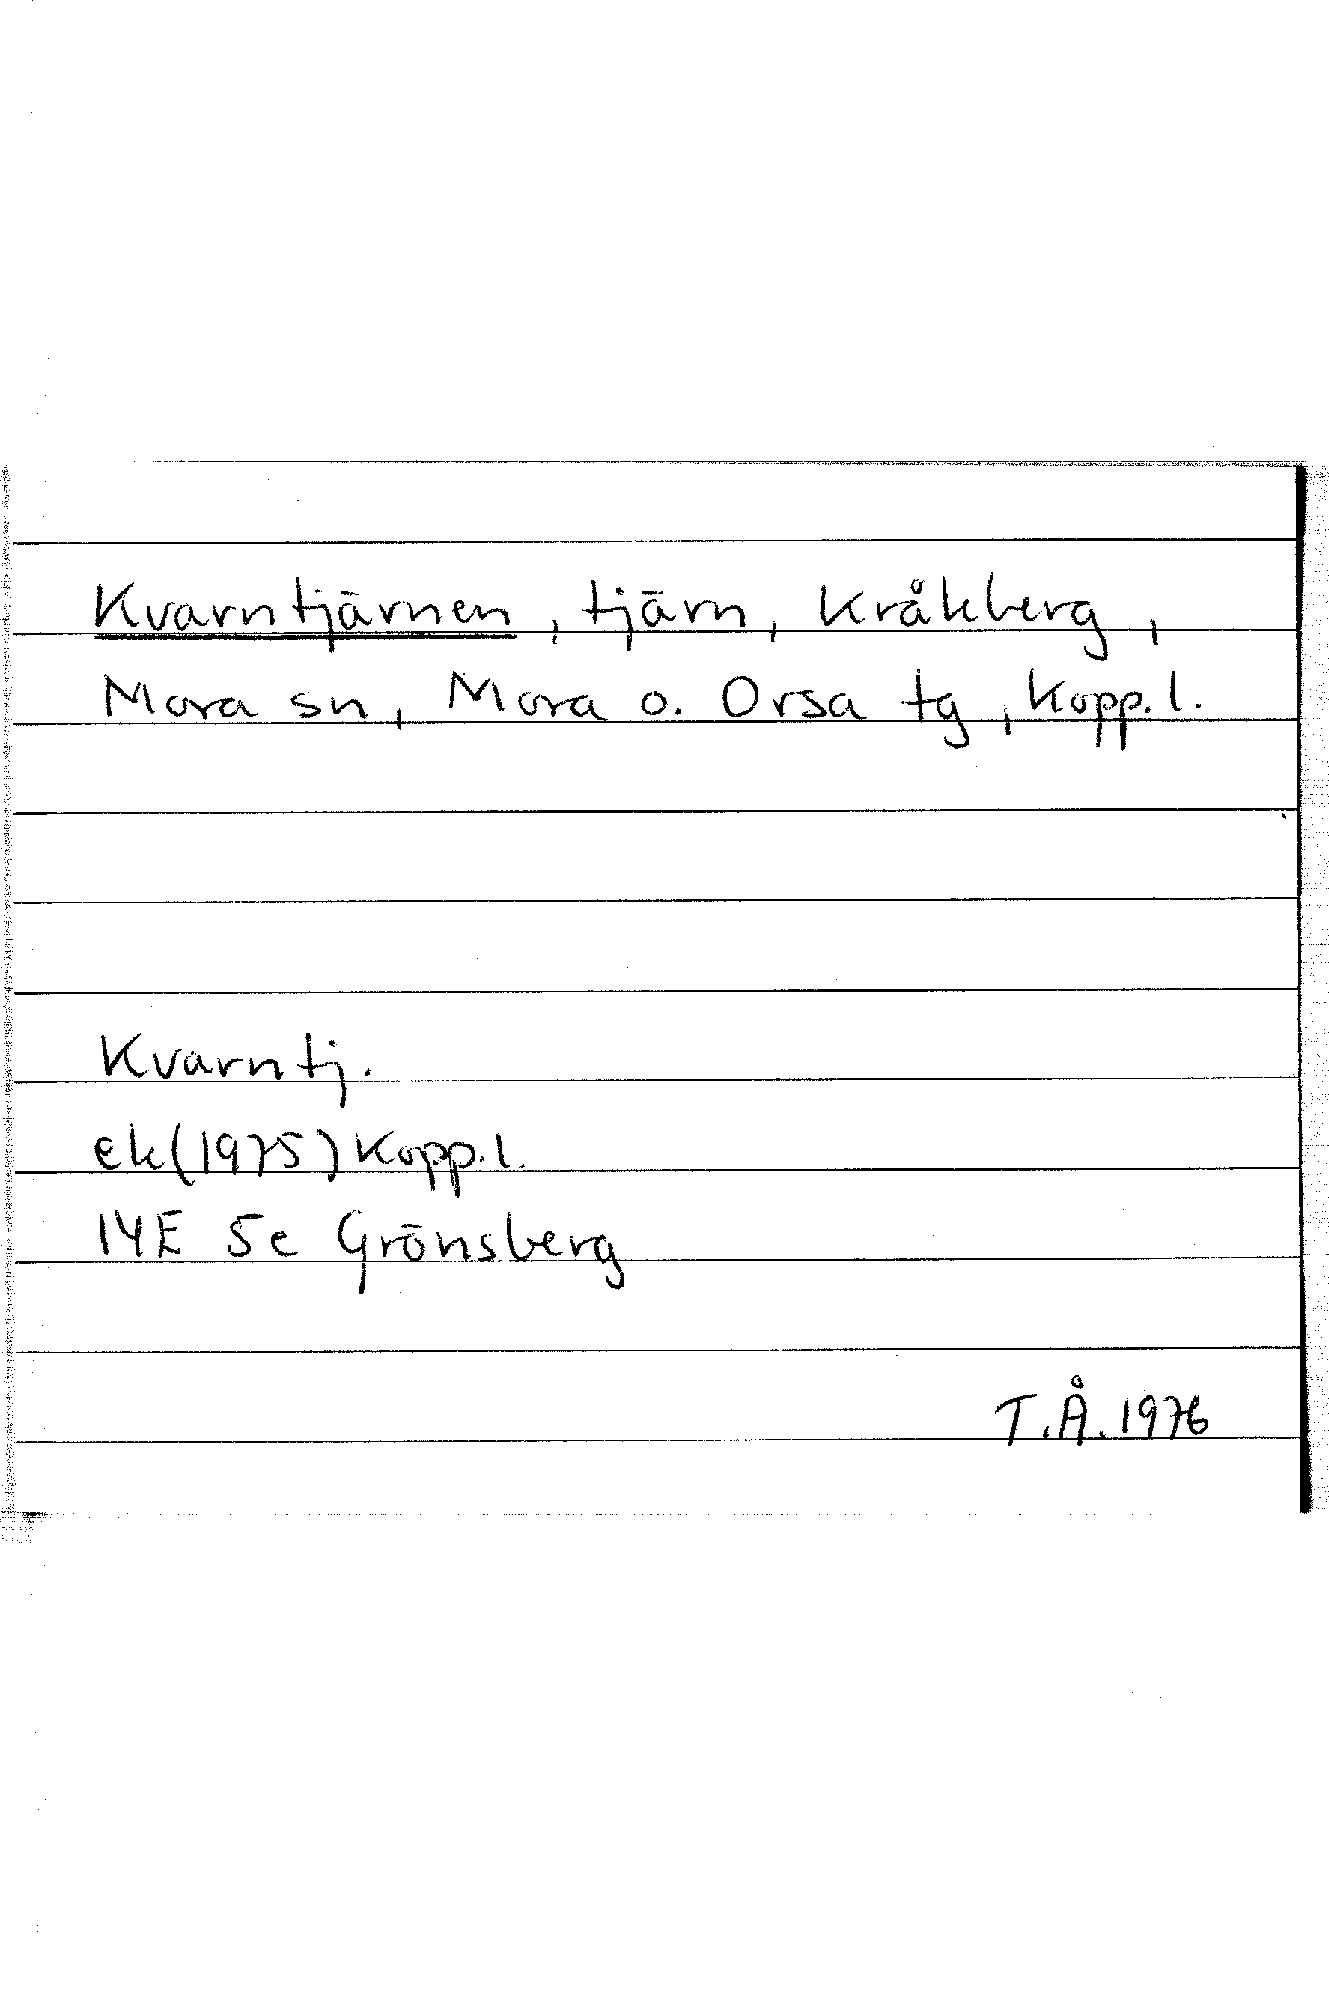 Kvarntjärnen, tjärn, Kråkberg,
Mora sn, Mora o. Orsa tg, Kopp.l.
Kvarntj.
ek(1975) Kopp.l.
14E 5e Grönsberg
T.Å.1976